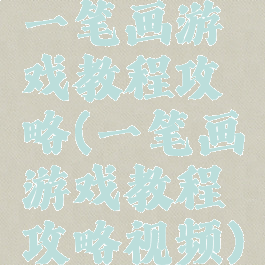 一笔画游
戏教程攻
略(一笔画
游戏教程
攻略视频)